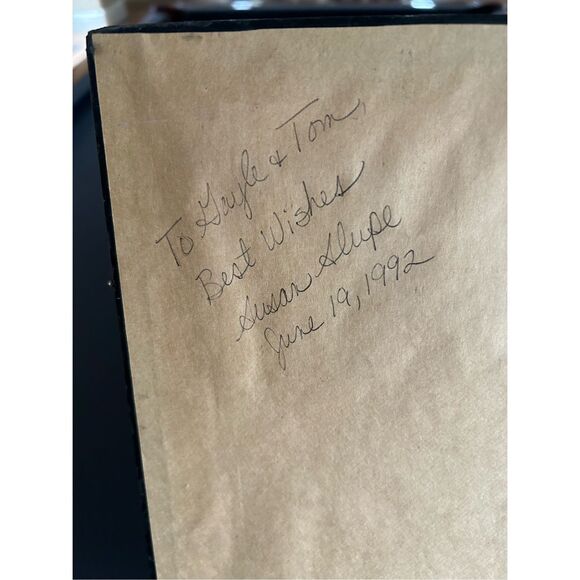 To Gayle & Tom,
Best Wishes
Susan Slupe
June 19, 1992